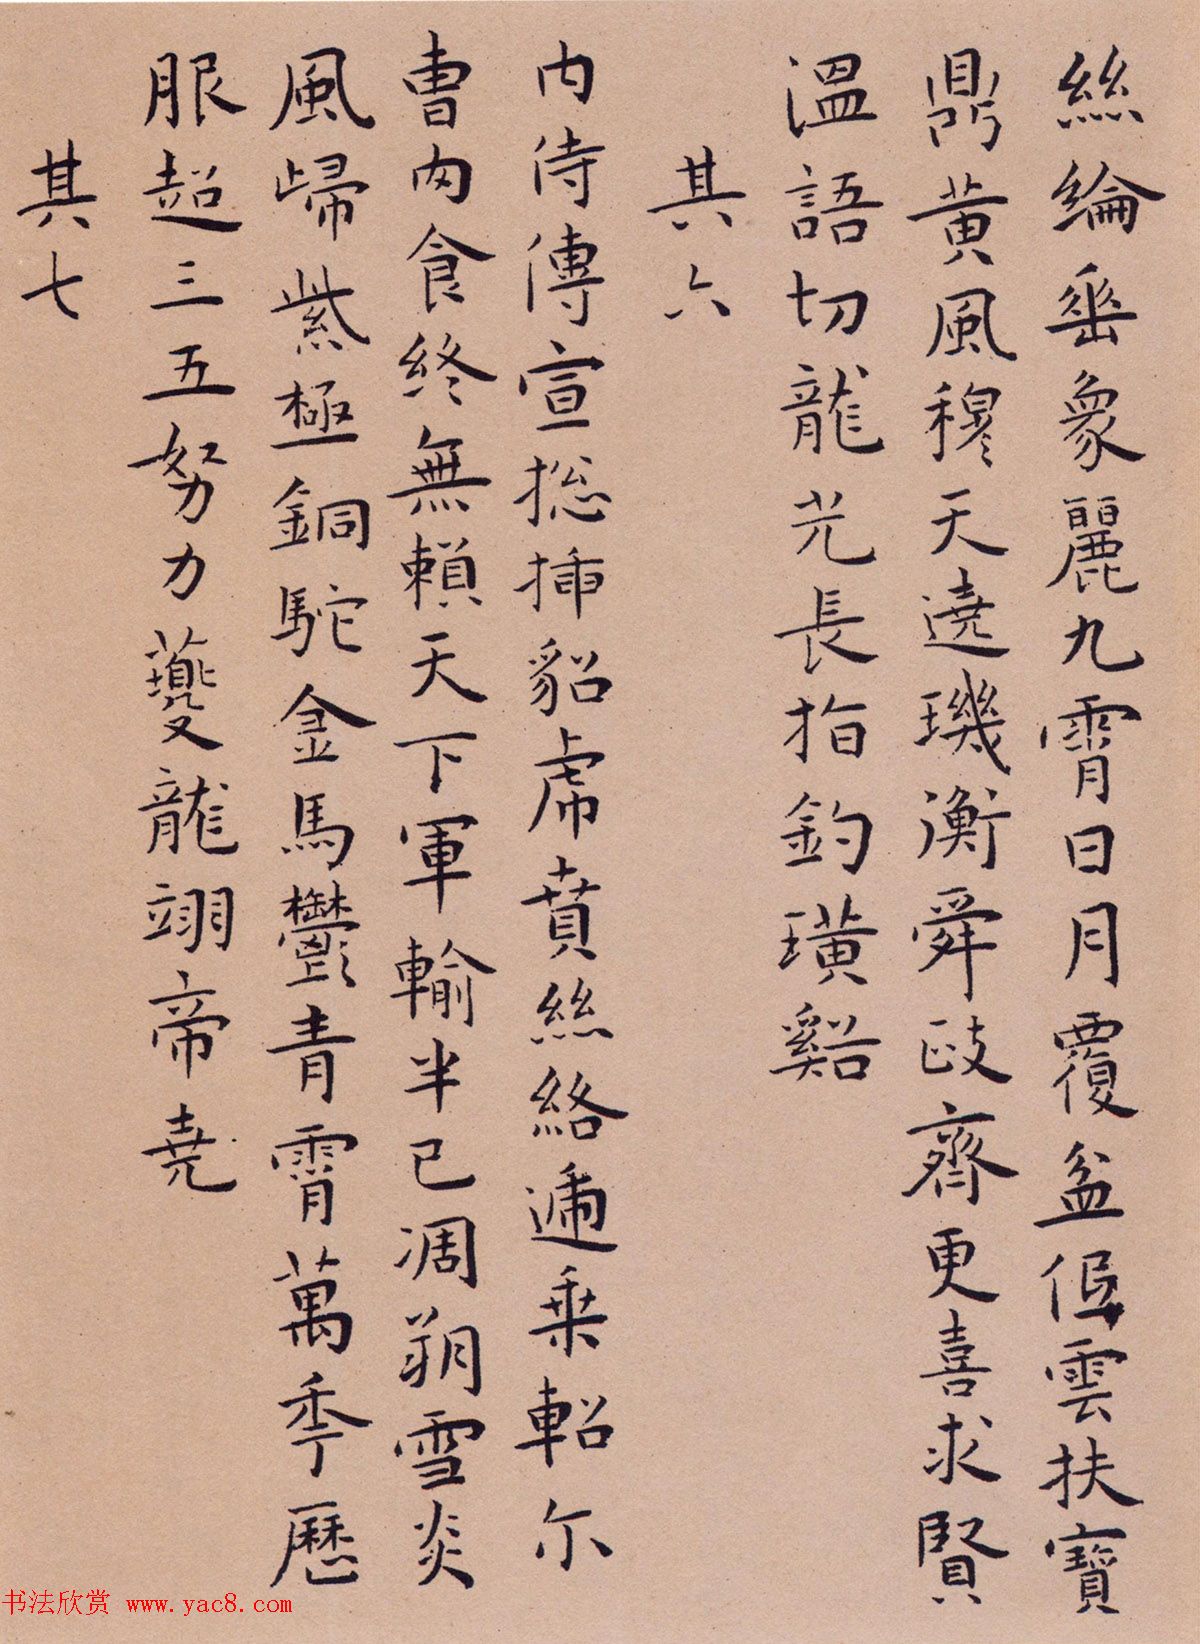 絲綸垂象麗九霄日月覆盆低雲扶寶
鼎黃風穆天遶璣衡舜政齊更喜求賢
溫語切龍光長指釣璜谿
其六
內侍傳宣捴插貂虎賁絲絡逓乗軺尔
曹肉食終無賴天下軍輸半已凋朔雪炎
風歸紫極銅駝金馬鬱青霄萬季曆
服超三五努力夔龍翊帝堯
其七
书法欣赏 www.yac8.com